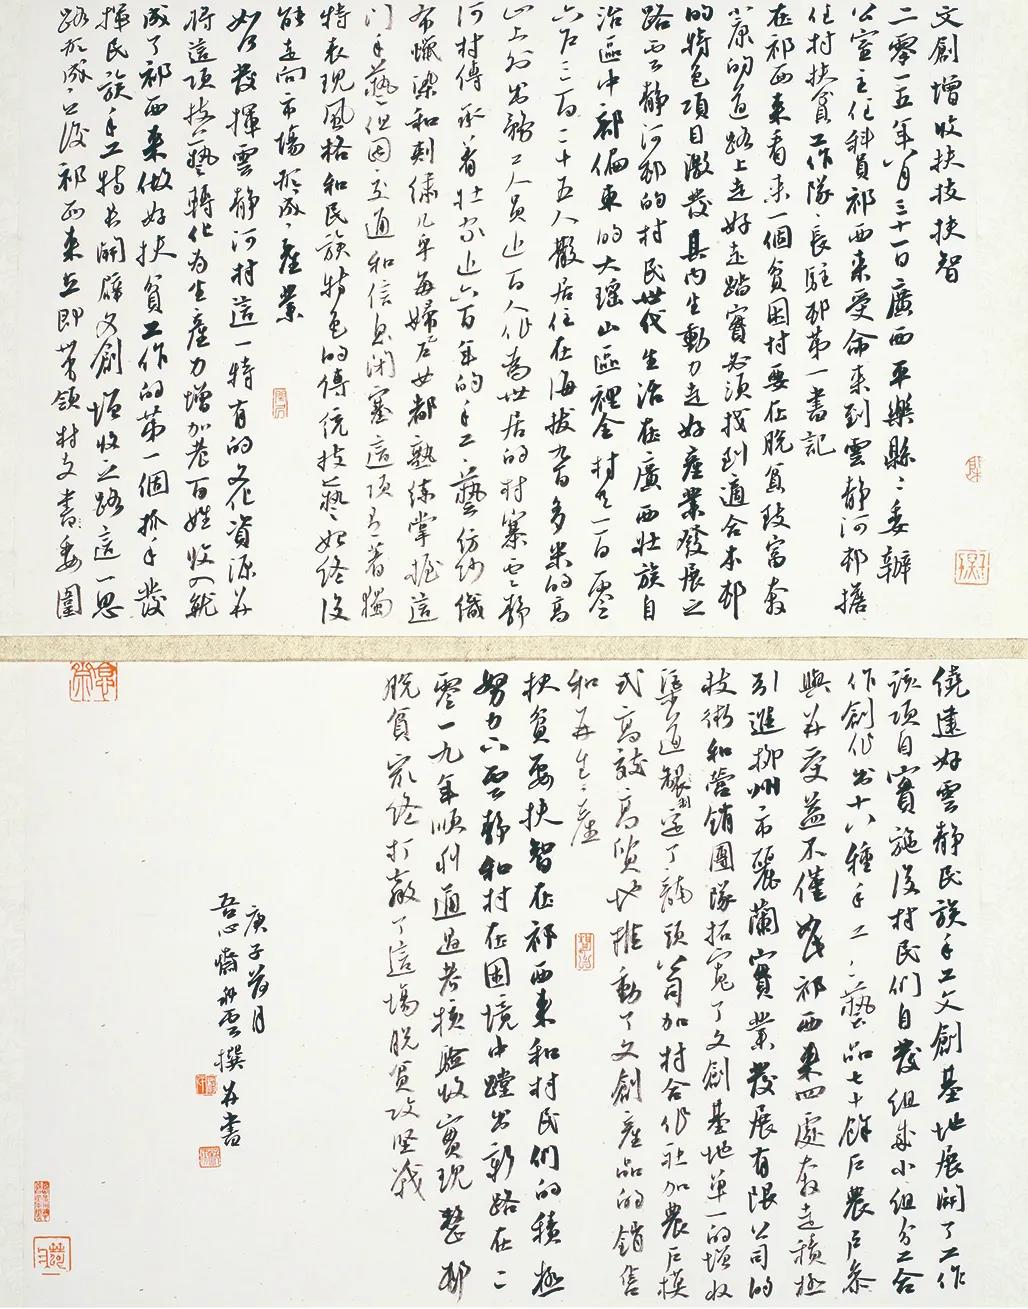 文創增收扶技扶智
二零一五年八月三十一日廣西平樂縣縣委辦
公室主任科員祁西來受命來到雲靜河邨擔
任村扶貧工作隊隊長駐邨第一書記
在祁西來看來一個貧困村要在脫貧致富奔
小康的道路上走好走踏實必須找到適合本邨
的特色項目激發其内生動力走好產業發展之
路雲靜河邨的村民世代生活在廣西壯族自
治區中部偏東的大瑤山區裡全村一百零
六户三百二十五人散居住在海拔九百多米的高
山上外出務工人員近百人作為世居的村寨雲靜
河村傳承着壯家近六百年的手工工藝紡紗織
布蠟染和刺繡几乎每婦女都熟練掌握這
门手藝但因交通和信息闭塞這項有着獨
特表現風格和民族特色的傳統技藝始終沒
能走向市場形成產業
如何發揮雲靜河村這一特有的文化資源并
將這項技藝轉化为生產力增加老百姓收入就
成了祁西來做好扶貧工作的第一個抓手發
揮民族手工特長開辟文創增收之路這一思
路形成之後祁西來立即帶領村支書村委圍
繞建好雲靜民族手工文創基地展開了工作
該項目實施後村民们自發組成小組分工合
作創作出十六種手工工藝品七十餘户農户參
與并受益不僅如此祁西來四處奔走積極
引進柳州市麗蘭實業發展有限公司的
技術和營銷團隊拓寬了文創基地單一的增收
渠道製定了龍頭公司加村合作社加農户模
式高效高质地推動了文創產品的銷售
和再生產
扶貧要扶智在祁西來和村民们的積極
努力下雲靜和村在困境中蹚出新路在二
零一九年順利通過考核驗收實現整邨
脫貧最終打贏了這場脫貧攻坚戰
庚子荷月
吾心齋 雲撰并書